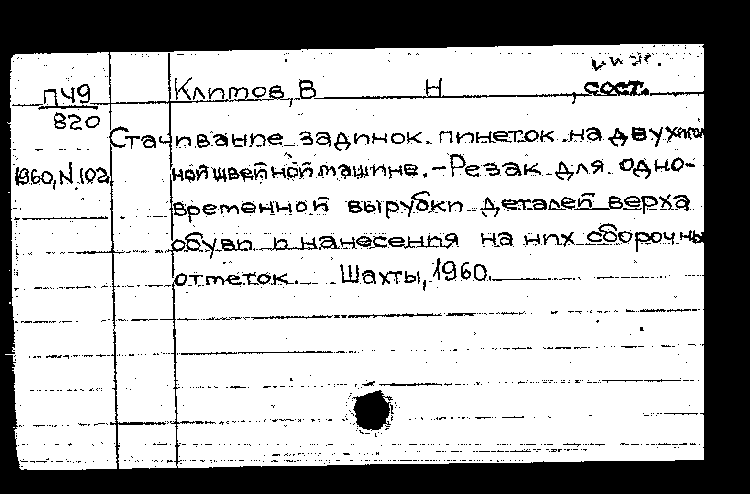 инж.
П49 Климов, В Н , сост.
820
Стачивание задинок пинеток на двухиголь
1960, N 102 ной швейной машине. - Резак для одно-
временной вырубки деталей верха
обуви и нанесения на них сборочны
отметок. Шахты, 1960.